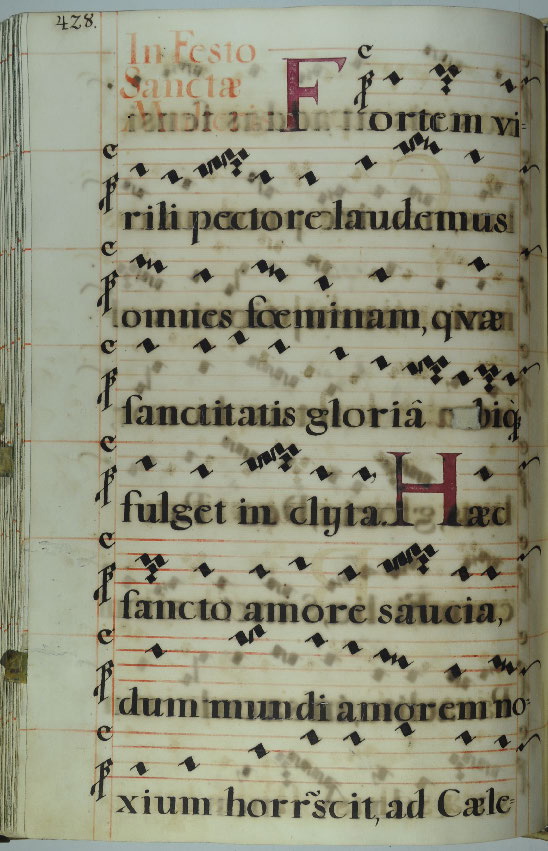 428.
In Festo
Sanctæ
Fortem vi=
rili pectore laudemus
omnes fœminam, qvæ
sanctitatis gloriâ biq̀
fulget in clyta. Hæc
sancto amore saucia,
dum mundi amorem no=
xium horrs̃cit, ad Cæle=